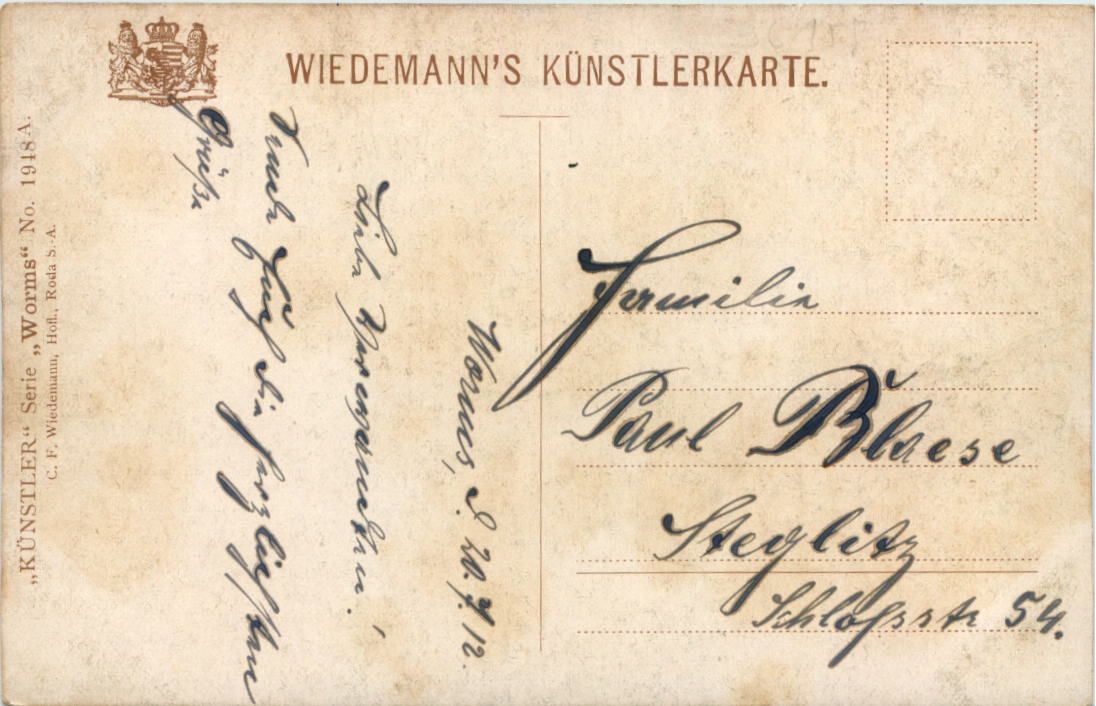 WIEDEMANN'S KÜNSTLERKARTE.
„KÜNSTLER“ Serie „Worms“ No. 1918 A.
C. F. Wiedemann, Hofl., Roda S.-A.
Worms, d. 20.7.12.
Liebe Verwandten!
Sende Euch die herzlichsten
Grüße
Familie
Paul Blaese
Steglitz
Schloßstr 54.